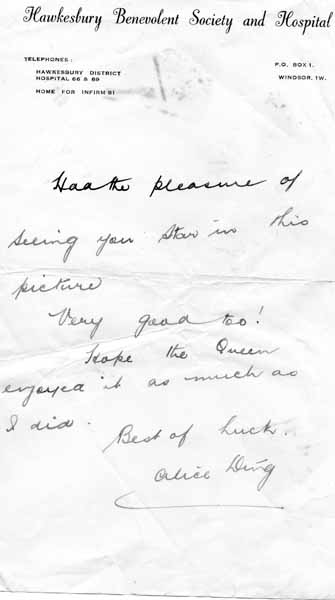 Hawkesbury Benevolent Society and Hospital
TELEPHONES:
HAWKESBURY DISTRICT
HOSPITAL 66 & 69
HOME FOR INFIRM 81
P.O. BOX 1.
WINDSOR, 1W.
Had the pleasure of
seeing you Star in this
picture
Very good too!
Hope the Queen
enjoyed it as much as
I did.
Best of Luck.
Alice Ding